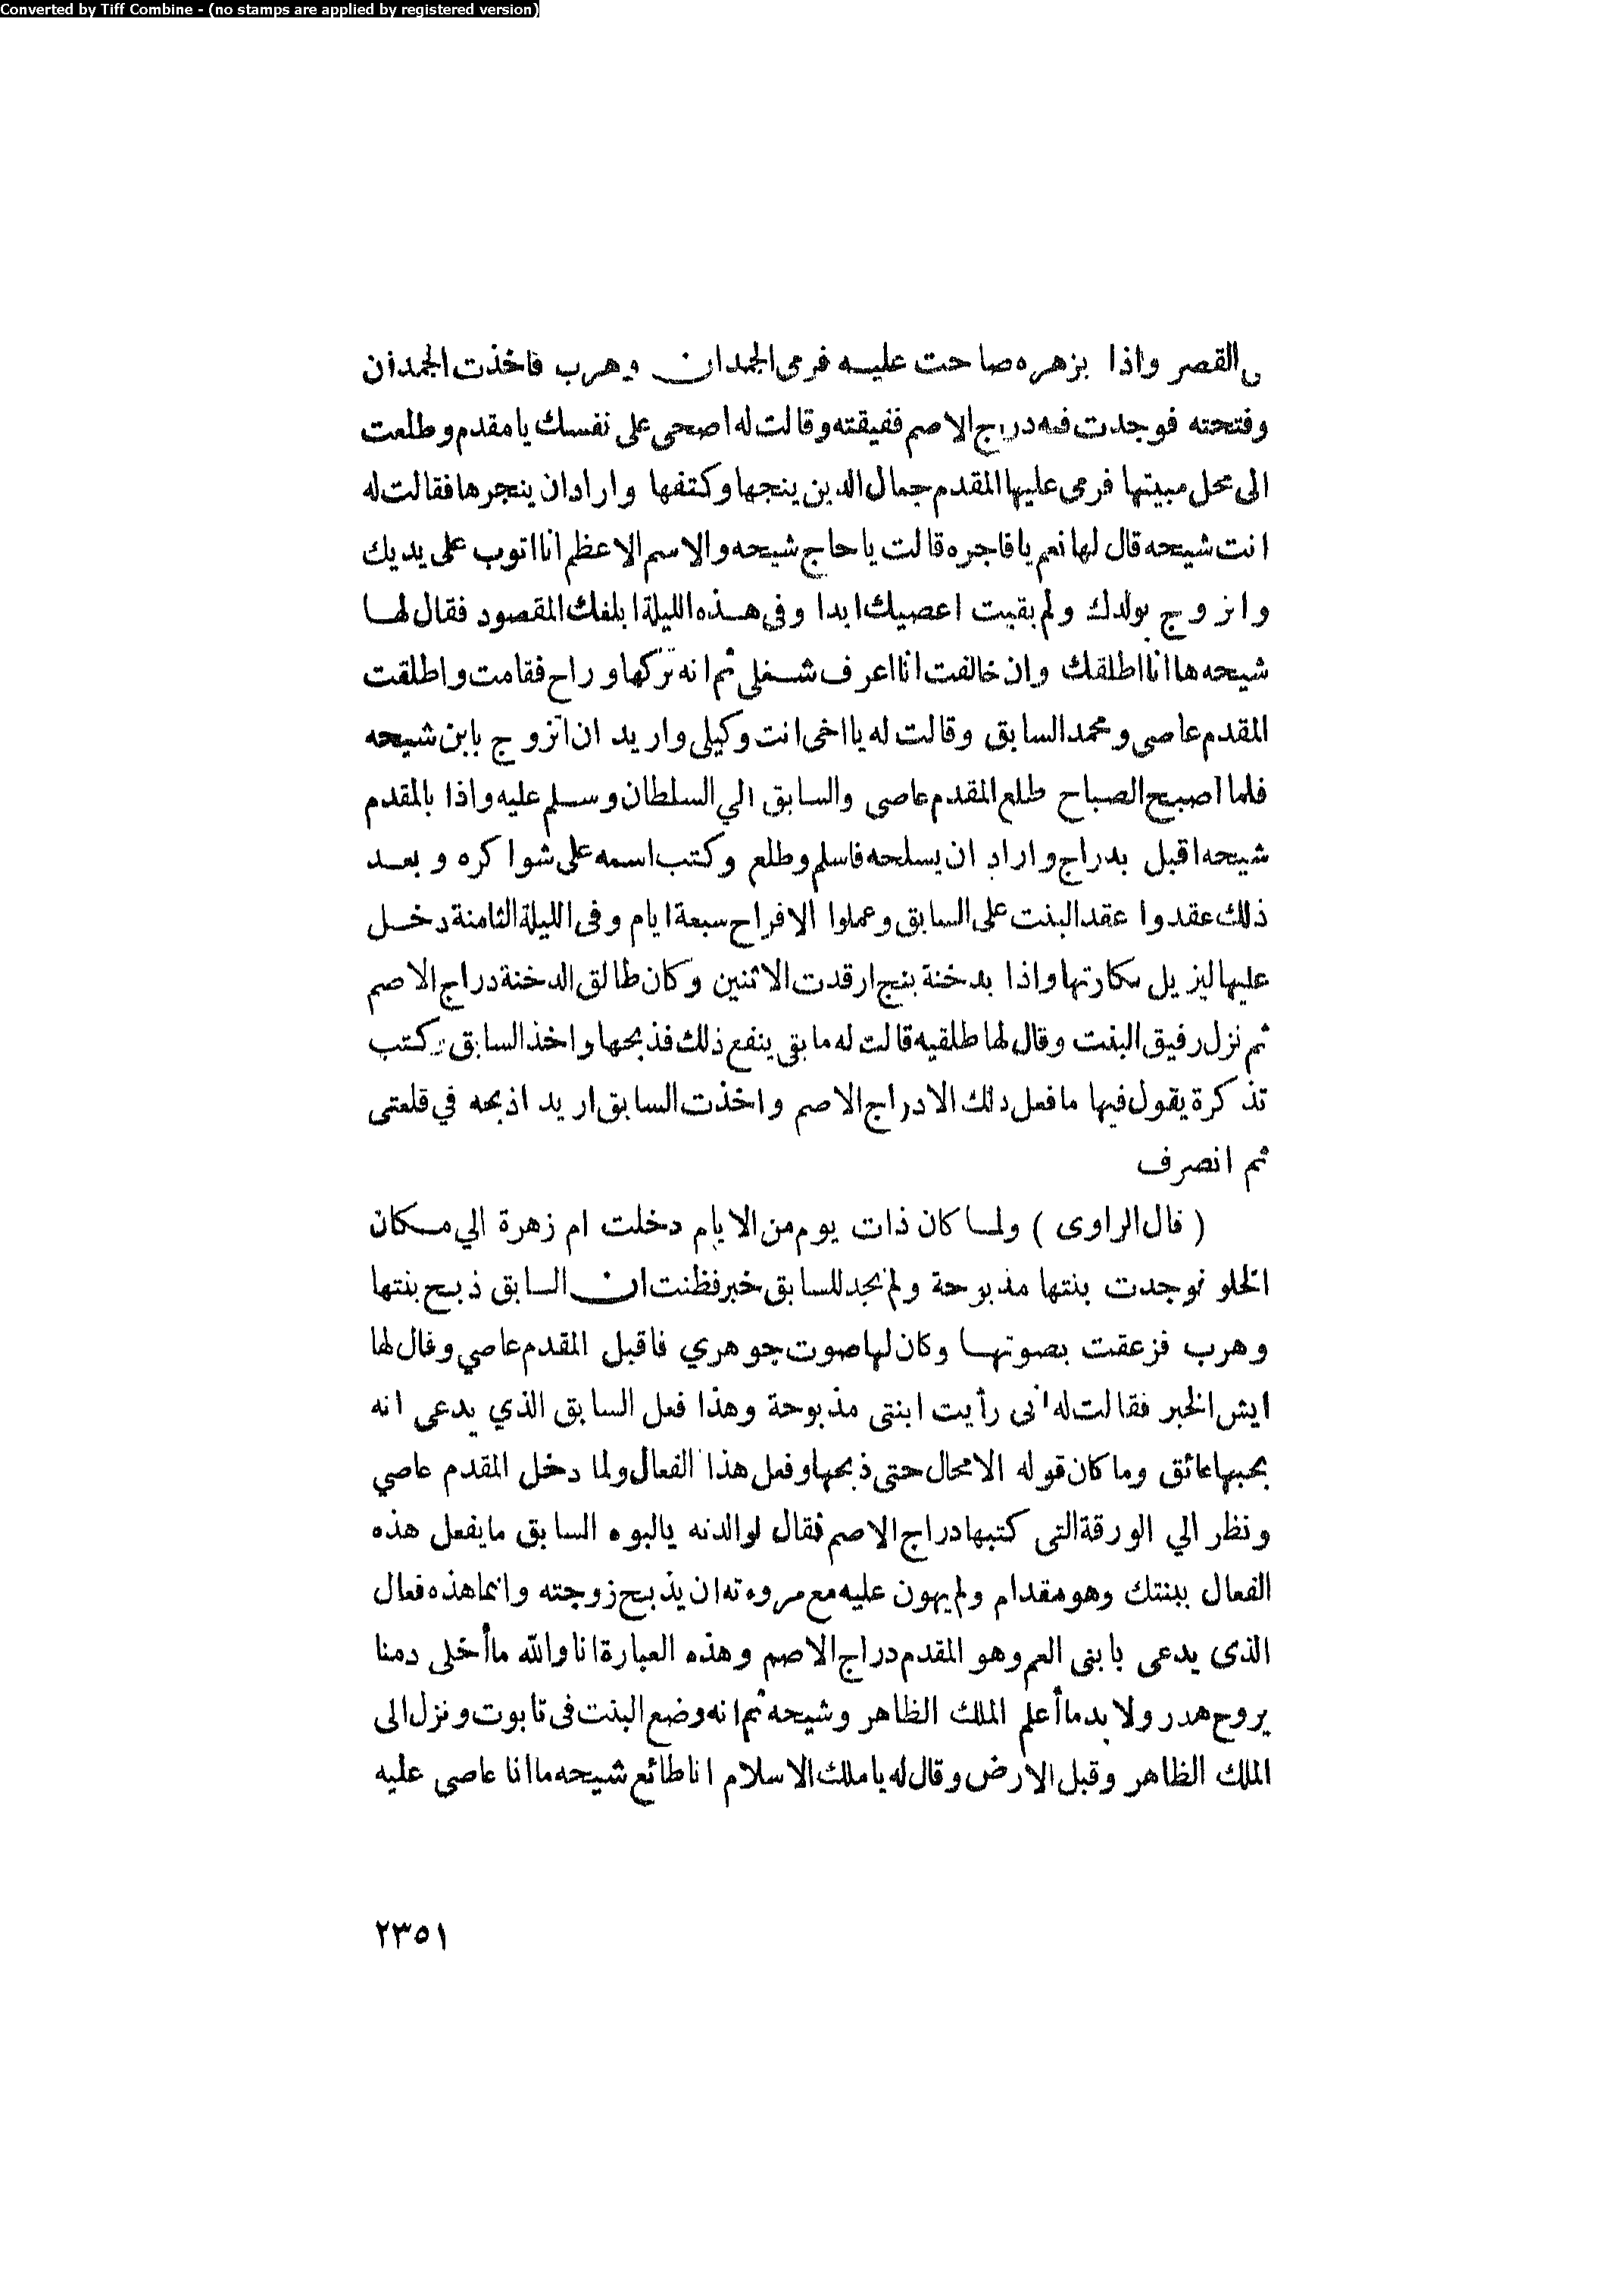 Converted by Tiff Combine - (no stamps are applied by registered version)
القصر واذا بزهره صاحت عليه فرمى الجمدان وهرب فاخذت الجمدان
وفتحته فوجدت فيه دراج الاصم ففيقته وقالت له اصحى على نفسك يا مقدم وطلعت
الى محل مبيتها فرمى عليها المقدم جمال الدين بنجها وكتفها واراد ان ينجرها فقالت له
انت شيحه قال لها نعم يا فاجره قالت يا حاج شيحه والاسم الاعظم انا اتوب على يديك
واتزوج بولدك ولم بقيت اعصيك ابدا وفى هذه الليلة ابلغك المقصود فقال لها
شيحه ها انا اطلقك وان خالفت انا اعرف شغلى ثم انه تركها وراح فقامت واطلقت
المقدم عاصى ومحمد السابق وقالت له يا اخى انت وكيلى واريد ان اتزوج بابن شيحه
فلما اصبح الصباح طلع المقدم عاصى والسابق الي السلطان وسلم عليه واذا بالمقدم
شيحه اقبل بدراج واراد ان يسلحه فاسلم وطلع وكتب اسمه على شواكره وبعد
ذلك عقدوا عقد البنت على السابق وعملوا الافراح سبعة ايام وفى الليلة الثامنة دخل
عليها ليزيل بكارتها واذا بدخنة بنج ارقدت الاثنين وكان طالق الدخنة دراج الاصم
ثم نزل رفيق البنت وقال لها طلقيه قالت له ما بقى ينفع ذلك فذبحها واخذ السابق وكتب
تذكرة يقول فيها ما فعل ذلك الا دراج الاصم واخذت السابق اريد اذبحه في قلعتى
ثم انصرف
( قال الراوى ) ولما كان ذات يوم من الايام دخلت ام زهرة الي مكان
الخلو فوجدت بنتها مذبوحة ولم تجد للسابق خبر فظنت ان السابق ذبح بنتها
وهرب فزعقت بصوتها وكان لها صوت جوهري فاقبل المقدم عاصي وقال لها
ايش الخبر فقالت له انى رأيت ابنتى مذبوحة وهذا فعل السابق الذي يدعى انه
بحبها عائق وما كان قوله الا محال حتى ذبحها وفعل هذا الفعال ولما دخل المقدم عاصي
ونظر الي الورقة التى كتبها دراج الاصم فقال لوالدته يالبوه السابق ما يفعل هذه
الفعال ببنتك وهو مقدام ولم يهون عليه مع مروءته ان يذبح زوجته وانما هذه فعال
الذى يدعى بابنى العم وهو المقدم دراج الاصم وهذه العبارة انا والله ما أخلى دمنا
يروح هدر ولا بد ما أعلم الملك الظاهر وشيحه ثم انه وضع البنت فى تابوت ونزل الى
الملك الظاهر وقبل الارض وقال له يا ملك الاسلام انا طائع شيحه ما انا عاصى عليه
٢٣٥١